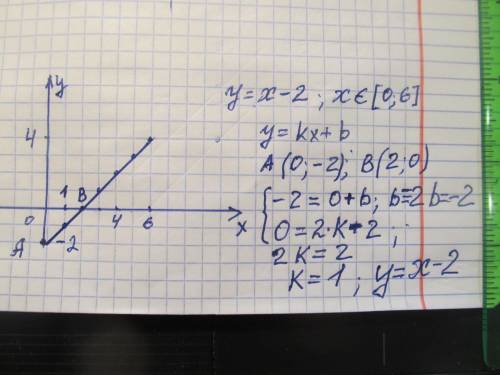 y
y=x-2 ; x∈[0;6]
4
y=kx+b
A(0;-2); B(2;0)
1 B
-2=0+b; b=2 b=-2
0 4 6 x
0=2·k-2 ;
A -2
2k=2
k=1 ; y=x-2